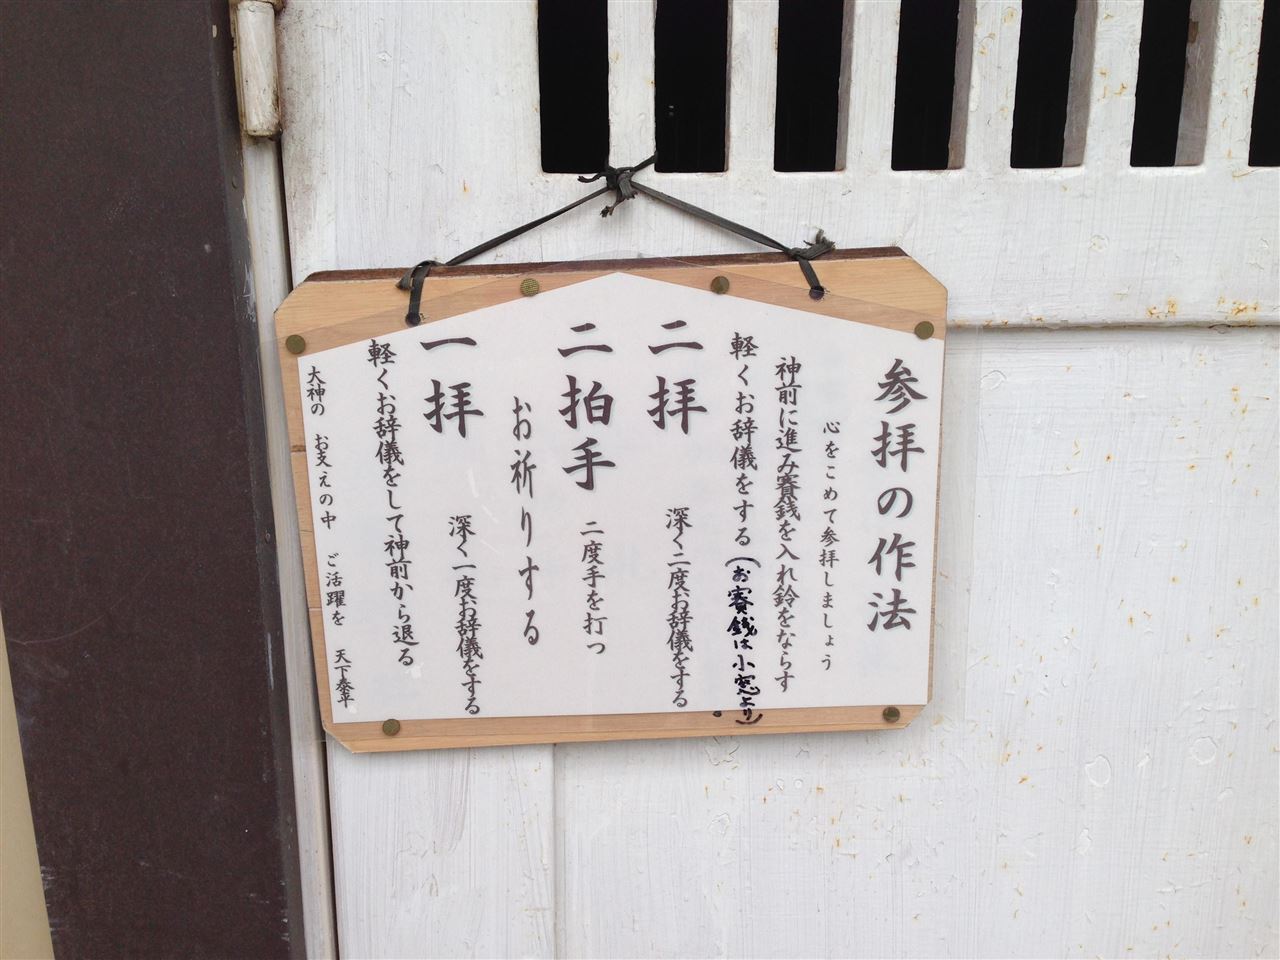 参拝の作法
心をこめて参拝しましょう
神前に進み賽銭を入れ鈴をならす
軽くお辞儀をする(お賽銭は小窓より)
二拝 深く二度お辞儀をする
二拍手 二度手を打つ
お祈りする
一拝 深く一度お辞儀をする
軽くお辞儀をして神前から退る
大神の お支えの中 ご活躍を 天下泰平